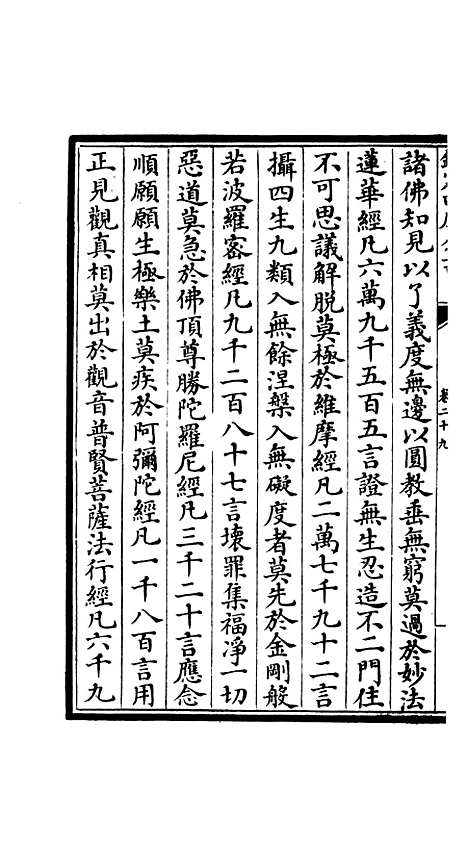 卷二十九
諸佛知見以了義度無邊以圓教垂無窮莫過於妙法
蓮華經凡六萬九千五百五言證無生忍造不二門住
不可思議解脫莫極於維摩經凡二萬七千九十二言
攝四生九類入無餘涅槃入無礙度者莫先於金剛般
若波羅密經凡九千二百八十七言壞罪集福淨一切
惡道莫急於佛頂尊勝陀羅尼經凡三千二十言應念
順願願生極樂土莫疾於阿彌陀經凡一千八百言用
正見觀真相莫出於觀音普賢菩薩法行經凡六千九